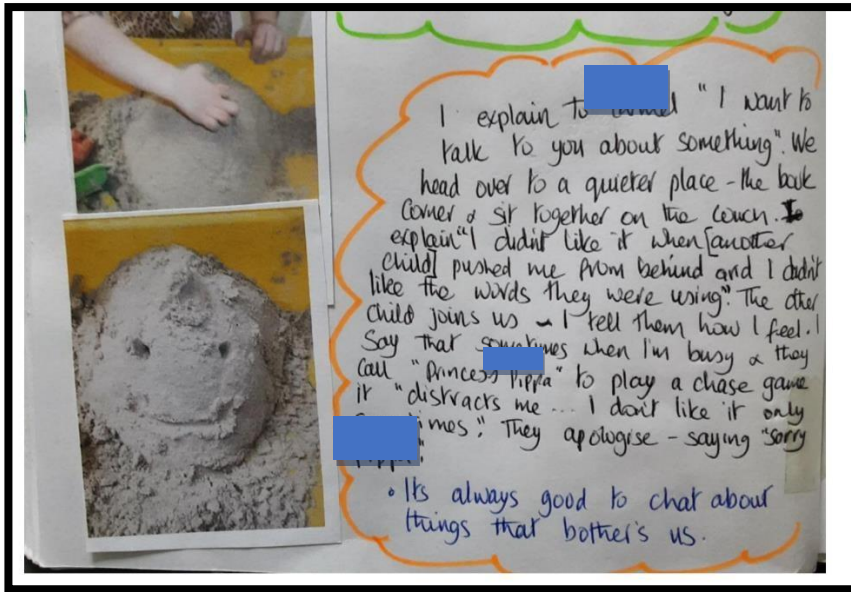 I explain to "I want to
talk to you about something". We
head over to a quieter place - the book
corner & sit together on the couch. I
explain "I didn't like it when [another
child] pushed me from behind and I didn't
like the words they were using". The other
child joins us - I tell them how I feel. I
say that sometimes when I'm busy & they
call "Princess" to play a chase game
it "distracts me ... I don't like it only
." They apologise - saying "sorry
• Its always good to chat about
things that bother's us.